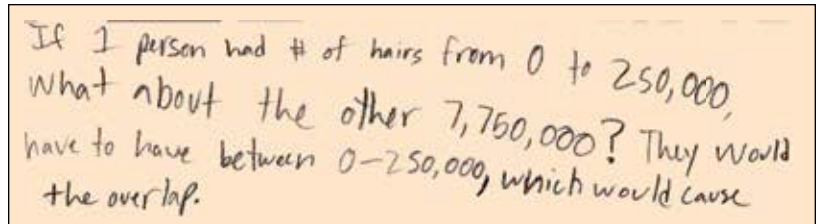 If 1 person had # of hairs from 0 to 250,000,
What about the other 7,750,000? They would
have to have between 0-250,000, which would cause
the overlap.